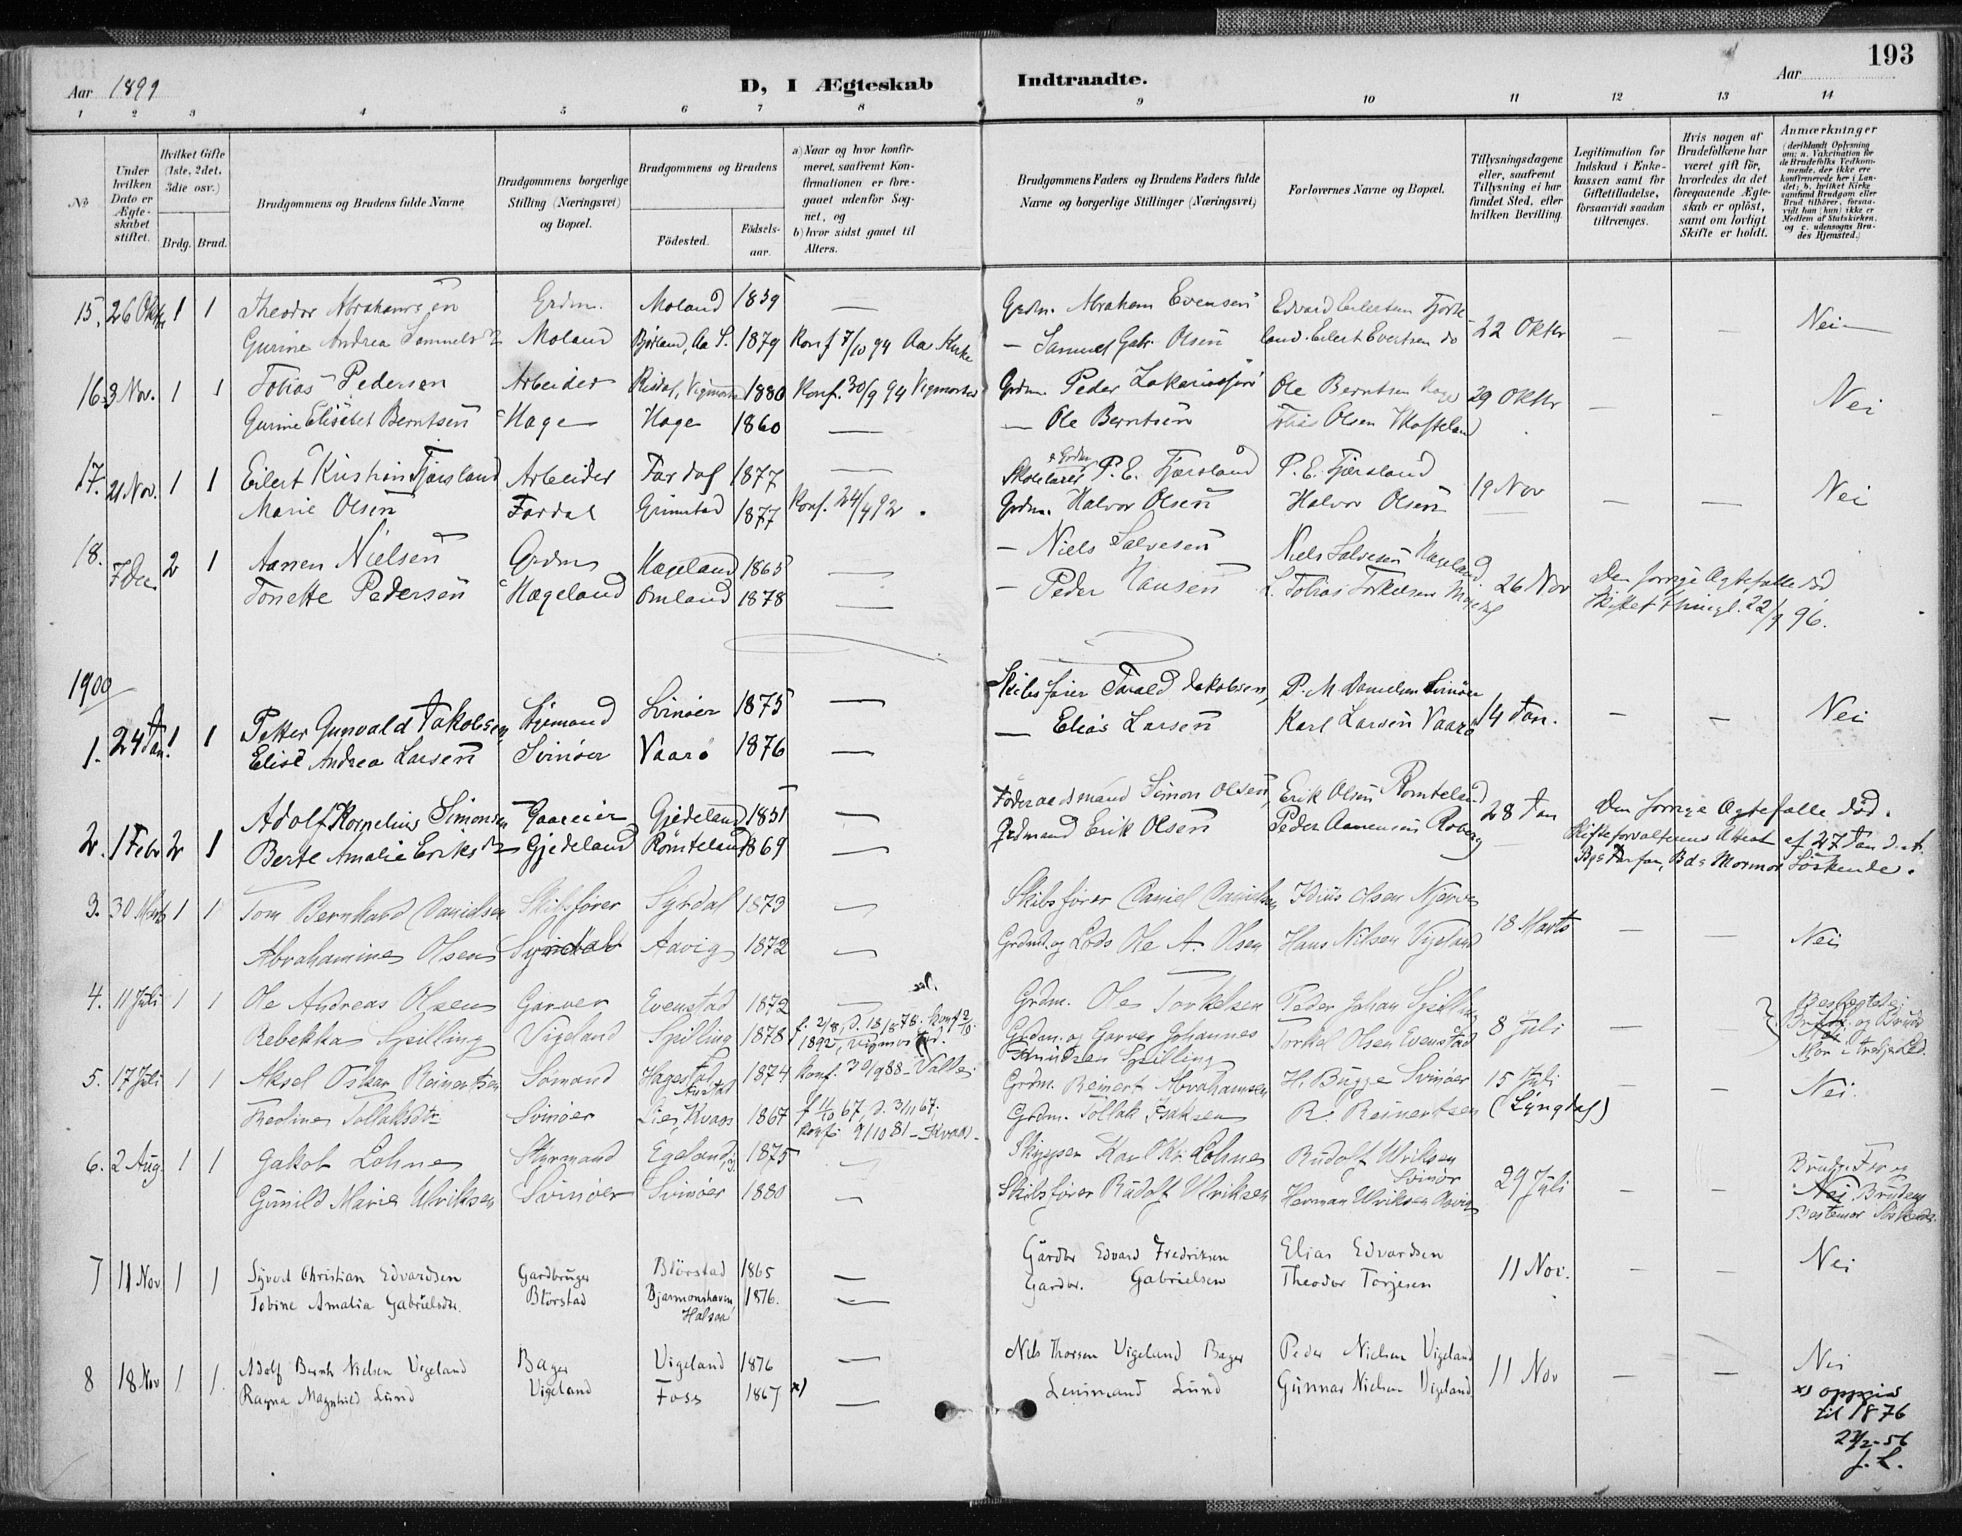 193
Aar 1899
D, I Ægteskab Indtraadte.
Aar
1 2 3 4 5 6 7 8 9 10 11 12 13 14
No
Under hvilken Dato er Ægteskabet stiftet.
Hvilket Gifte (1ste, 2det, 3die osv.)
Brdg. Brud.
Brudgommens og Brudens fulde Navne
Brudgommens borgerlige Stilling (Næringsvei) og Bopæl.
Brudgommens og Brudens
Födested. Födselsaar.
a) Naar og hvor konfirmeret, saafremt Konfirmationen er foregaaet udenfor Sognet, og
b) hvor sidst gaaet til Alters.
Brudgommens Faders og Brudens Faders fulde Navne og borgerlige Stillinger (Næringsvei)
Forlovernes Navne og Bopæl.
Tillysningsdagene eller, saafremt Tillysning ei har fundet Sted, efter hvilken Bevilling.
Legitimation for Indskud i Enkekassen samt for Giftetilladelse, forsaavidt saadan tiltrænges.
Hvis nogen af Brudefolkene har været gift för, hvorledes da det foregaaende Ægteskab er oplöst, samt om lovligt Skifte er holdt.
Anmærkninger (deriblandt Oplysning om: a. Vakcination for de Brudefolks Vedkommende, der ikke ere konfirmerede her i Landet; b. hvilket Kirkesamfund Brudgom eller Brud tilhörer, forsaavidt han (hun) ikke er Medlem af Statskirken, og c. udensogns Brudes Hjemsted.)
15. 26 Oktbr 1 1 Theodor Abrahamsen Grdm. Moland 1859 — Grdm. Abraham Evensen Edvard Eilertsen Fjorde
Gurine Andrea Samuelsdr Moland Bjørland, Aa S. 1879 Konf 7/10 94 Aa Kirke — Samuel Gabr. Olsen land. Eilert Evertsen do 22 Oktbr — — Nei
16. 3 Nov. 1 1 Tobias Pedersen Arbeider Risdal, Vigmostad 1880 Konf. 30/9 94 Vigmostad Grdm. Peder Zakariassen Ole Berntsen Hage 29 Oktbr — — Nei
Gurine Elisabet Berntsen Hage Hage 1860 — — Ole Berntsen Tobias Olsen
17. 21 Nov. 1 1 Eilert Kristian Fjærsland Arbeider Fardal 1877 — Skolelærer & Grdm P. E. Fjærsland P. E. Fjærsland
Marie Olsen Fardal Grimstad 1877 Konf. 24/4 92. Grdm. Halvor Olsen Halvor Olsen 19 Nov — — Nei
18. 7 Dec 2 1 Aanen Nielsen Grdm Hægeland 1865 — — Niels Salvesen Niels Salvesen Hægeland
Tonette Pedersen Hægeland Omland 1878 — — Peder Hansen L. Tobias Torkelsen 26 Nov Den forrige Ægtefælle død
Skiftet thingl. 22/9 96.
1900
1. 24 Jan. 1 1 Petter Gunvald Jakobsen Styrmand Svinøer 1875 — Skibsfører Tarald Jakobsen, P. M. Danielsen Svinøer
Elise Andrea Larsen Svinøer Vaarø 1876 — — Elias Larsen Karl Larsen Vaarø 14 Jan. — — Nei
2. 1 Febr 2 1 Adolf Kornelius Simonsen Gaareier Gjedeland 1851 — Føderaadsmand Simon Olsen, Erik Olsen Romteland
Berte Amalie Eriksdr Gjedeland Römteland 1869 — Grdmand Erik Olsen Peder Aanensen 28 Jan Den forrige Ægtefælle død.
Skifteforvalterens Attest af 27 Jan d. A.
Bgs Farfar, Bds Mormor Söskende.
3. 30 Marts 1 1 Tom Bernhard Danielsen Skibsfører Syrdal 1873 — Skibsfører Daniel Danielsen Olsen Njerve
Abrahamine Olsen Syrdal Aavig 1872 — Grdmd. og Lods Ole A. Olsen Hans Nilsen Vigeland 18 Marts — — Nei
4. 11 Juli 1 1 Ole Andreas Olsen Garver Evenstad 1872 — Grdm. Ole Torkelsen Peder Johan Spilling
Rebekka Spilling Vigeland Spilling 1878 f. 2/8, d. 18/8 78. Konf 2/10 1892, Vigmostad. Grdm. og Garver Johannes Knudsen Spilling Torkel Olsen Evenstad 8 Juli — Beslægtede: Brudg. og Bruds Mor i tredje Led.
5. 17 Juli 1 1 Aksel Oskar Reinertsen Sømand Hagestad 1874 Konf. 30/9 88 – Valle Grdm. Reinert Abrahamsen H. Bugge Svinøer 15 Juli — — Nei.
Tollaksdtr Svinøer Lie, Kvaas 1867 f 11/10 67, d. 3/11 67. Konf. 9/10 81 – Kvaas. Grdm. Tollak Isaksen R. Reinertsen (Lyngdal)
6. 2 Aug. 1 1 Jakob Lohne Styrmand Egeland, 1875 — Skipper Karl Kr. Lohne Rudolf Ulriksen Svinør
Gunild Marie Ulriksen Svinøer Svinøer 1880 — Skibsfører Rudolf Ulriksen Herman Ulriksen 29 Juli — — Brudg. Far og Nei Brudens Bestemor Söskende.
7 11 Nov 1 1 Syvert Christian Edvardsen Gardbruger Blörstad 1865 — Gårdbr Edvard Fredriksen Elias Edvardsen
Tobine Amalia Gabrielsdtr. Blörstad Bjærmonshavn, Halsaa 1876. — Gardbr. Gabrielsen Theodor Torjesen 11 Nov. — — Nei
8 18 Nov 1 1. Adolf Bernh Nielsen Vigeland Bager Vigeland 1876 — Nils Thorsen Vigeland Bager Peder Nielsen Vigeland
Ragna Magnhild Lund Vigeland Foss 1867 x) — Lensmand Lund Gunnar Nielsen Vigeland 11 Nov — — Nei
x) oppgis
til 1876
27/2-56
J. L.